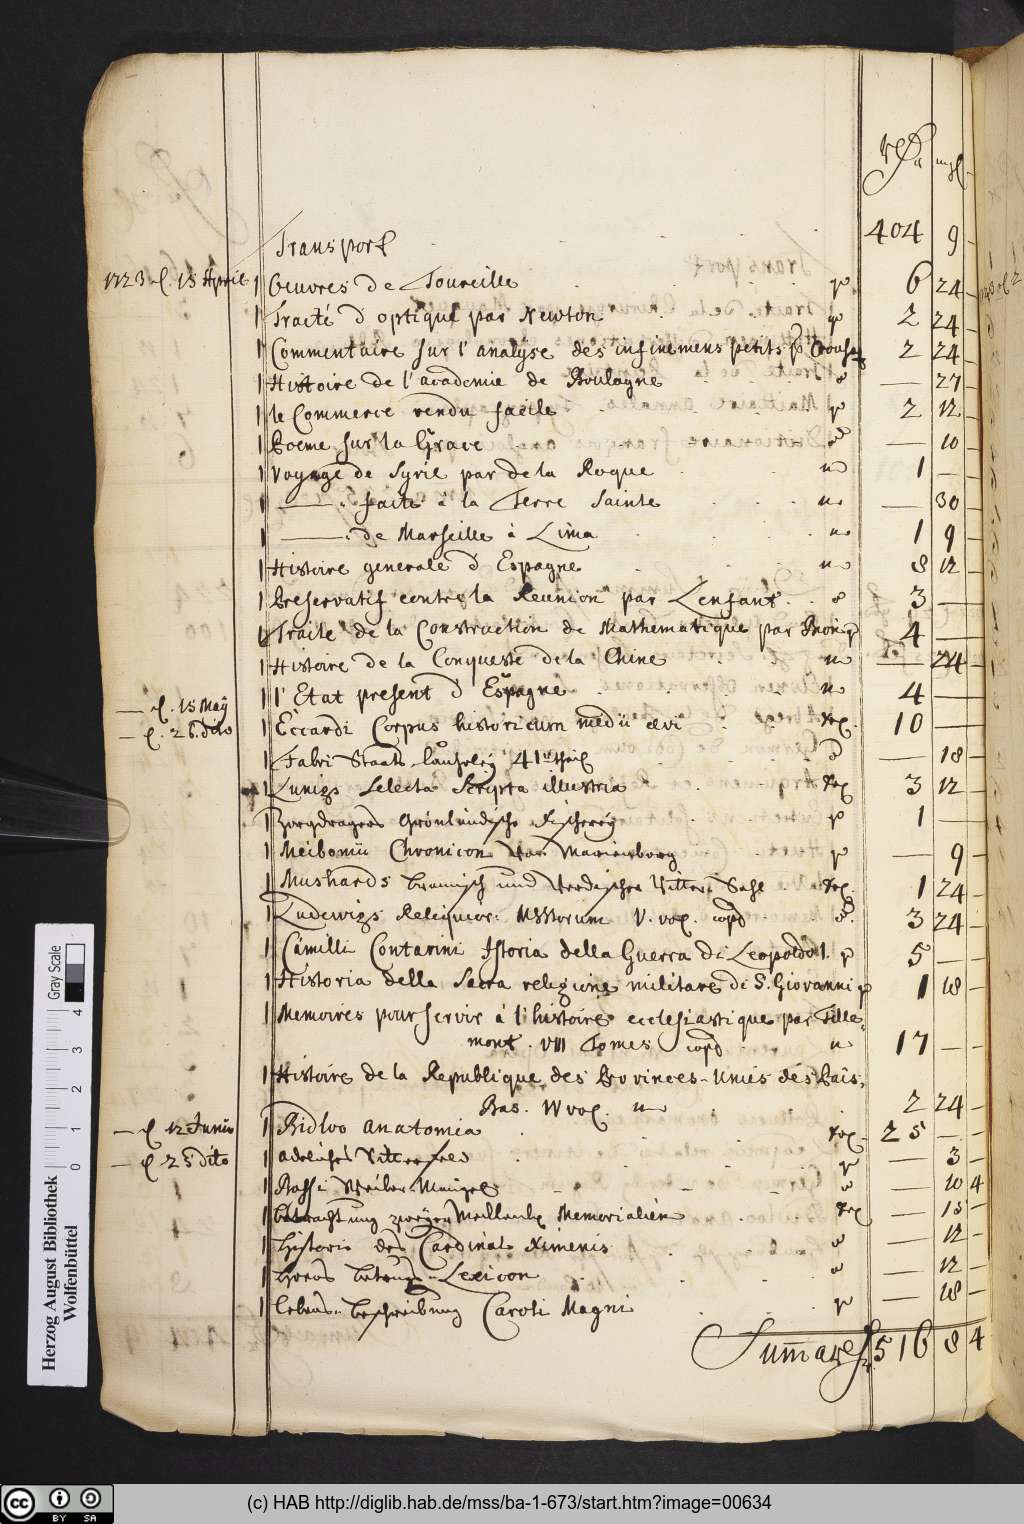 rthl mgl
Transport 404 9 -
1723 d. 15 April 1 Oeuvres de Toureille 4º 6 24 -
1 Traité d'optique par Newton 4º 2 24 -
1 Commentaire sur l'analyse des infinemens petits p Crousaz 2 24 -
1 Histoire de l'academie de Boulogne 8º — 27 -
1 le Commerce rendu facile 4º 2 12 -
1 Poeme sur la Grace — 10 -
1 Voyage de Syrie par de la Roque 12º 1 — -
1 —— faite à la Terre Sainte 12º — 30 -
1 —— de Marseille à Lima 12º 1 9 -
1 Histoire generale d'Espagne 12º 8 12 -
1 Preservatif contre la Reunion par Lenfant 8º 3 — -
1 Traité de la Construction de Mathematique par Bion 4º 4 — -
1 Histoire de la Conqueste de la Chine 12º — 24 -
— d. 15 Maÿ 1 l'Etat present d'Espagne 12º 4 — -
— d. 26. dito 1 Eccardi Corpus historicum medii ævi fol. 10 — -
1 Fabri Staats-Cantzeley 41 theil 8º — 18 -
1 Lunigs Selecta Scripta illustria fol. 3 12 -
1 Zorgdragers Grönländische Fischereÿ 4º 1 — -
1 Meibomii Chronicon Marienborg 4º — 9 -
1 Mushards bremisch und Verdischer Ritter Sahl fol. 1 24 -
1 Ludewigs Reliquior: MSStorum V. vol. cpd 8º 3 24 -
1 Camilli Contarini Istoria della Guerra di Leopoldo I. 4º 5 — -
1 Historia della Sacra religione militare di S. Giovanni 4º 1 18 -
1 Memoires pour servir à l'histoire ecclesiastique par Tille-
mont. VIII Tomes cpd 12º 17 — -
1 Histoire de la Republique des Provinces-Unies des Païs-
Bas. IV vol. 12º 2 24 -
— d. 12 Junii 1 Bidloo anatomia fol. 25 — -
— d. 25 dito 1 4º — 3 -
1 — 10 4
1 betrachtung zweyer Memorialien fol — 15 -
1 Historie des Cardinals Ximenis 8º — 12 -
1 betrugs-Lexicon 8º — 12 -
1 lebens-beschreibung Caroli Magni 4º — 18 -
Summa 516 8 4
Gray Scale
0 1 2 3 4
Herzog August Bibliothek
Wolfenbüttel
cc BY SA
(c) HAB http://diglib.hab.de/mss/ba-1-673/start.htm?image=00634